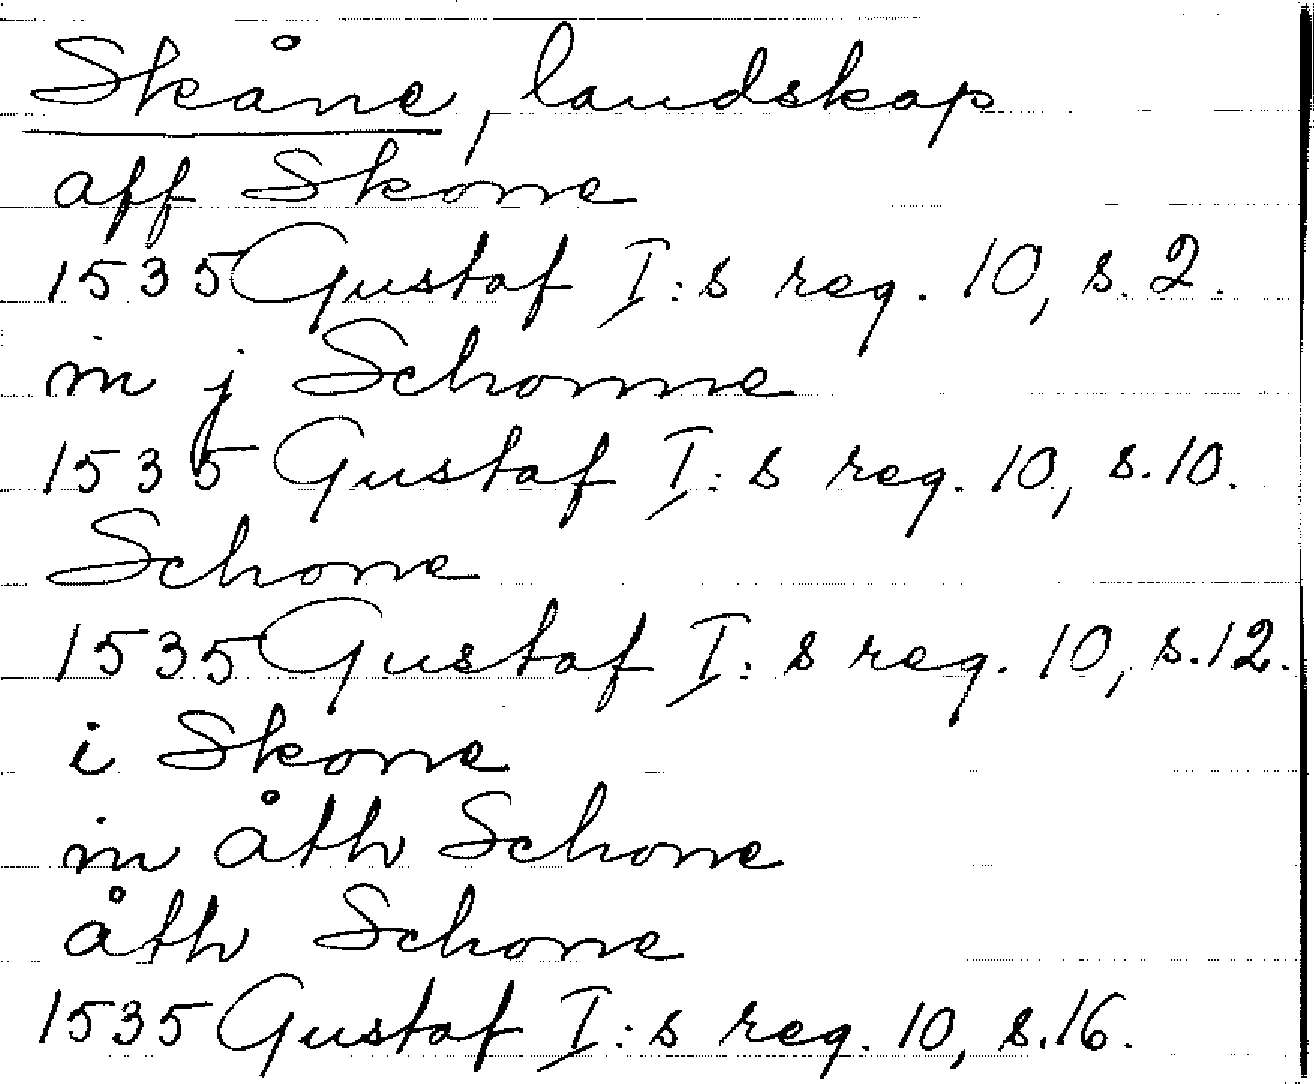 Skåne, landskap
aff Skone
1535 Gustaf I:s reg. 10, s. 2.
in j Schonne
1535 Gustaf I:s reg. 10, s. 10.
Schone
1535 Gustaf I:s reg. 10, s. 12.
i Skone
in åth Schone
åth Schone
1535 Gustaf I:s reg. 10, s. 16.